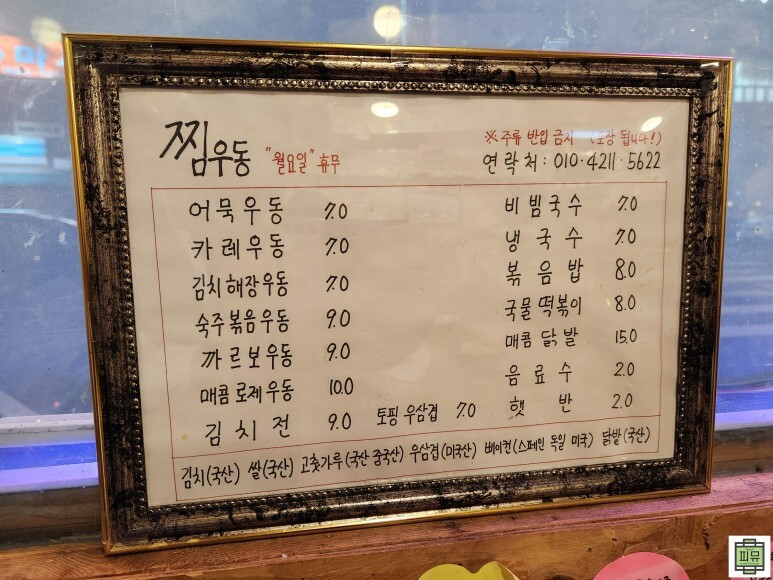 찜우동 "월요일" 휴무
※ 주류 반입 금지 (포장 됩니다!)
연락처: 010·4211·5622
어묵우동 7.0
카레우동 7.0
김치해장우동 7.0
숙주볶음우동 9.0
까르보우동 9.0
매콤로제우동 10.0
김치전 9.0
토핑 우삼겹 7.0
비빔국수 7.0
냉국수 7.0
볶음밥 8.0
국물떡볶이 8.0
매콤닭발 15.0
음료수 2.0
햇반 2.0
김치(국산) 쌀(국산) 고춧가루(국산 중국산) 우삼겹(미국산) 베이컨(스페인 독일 미국) 닭발(국산)
피뮤